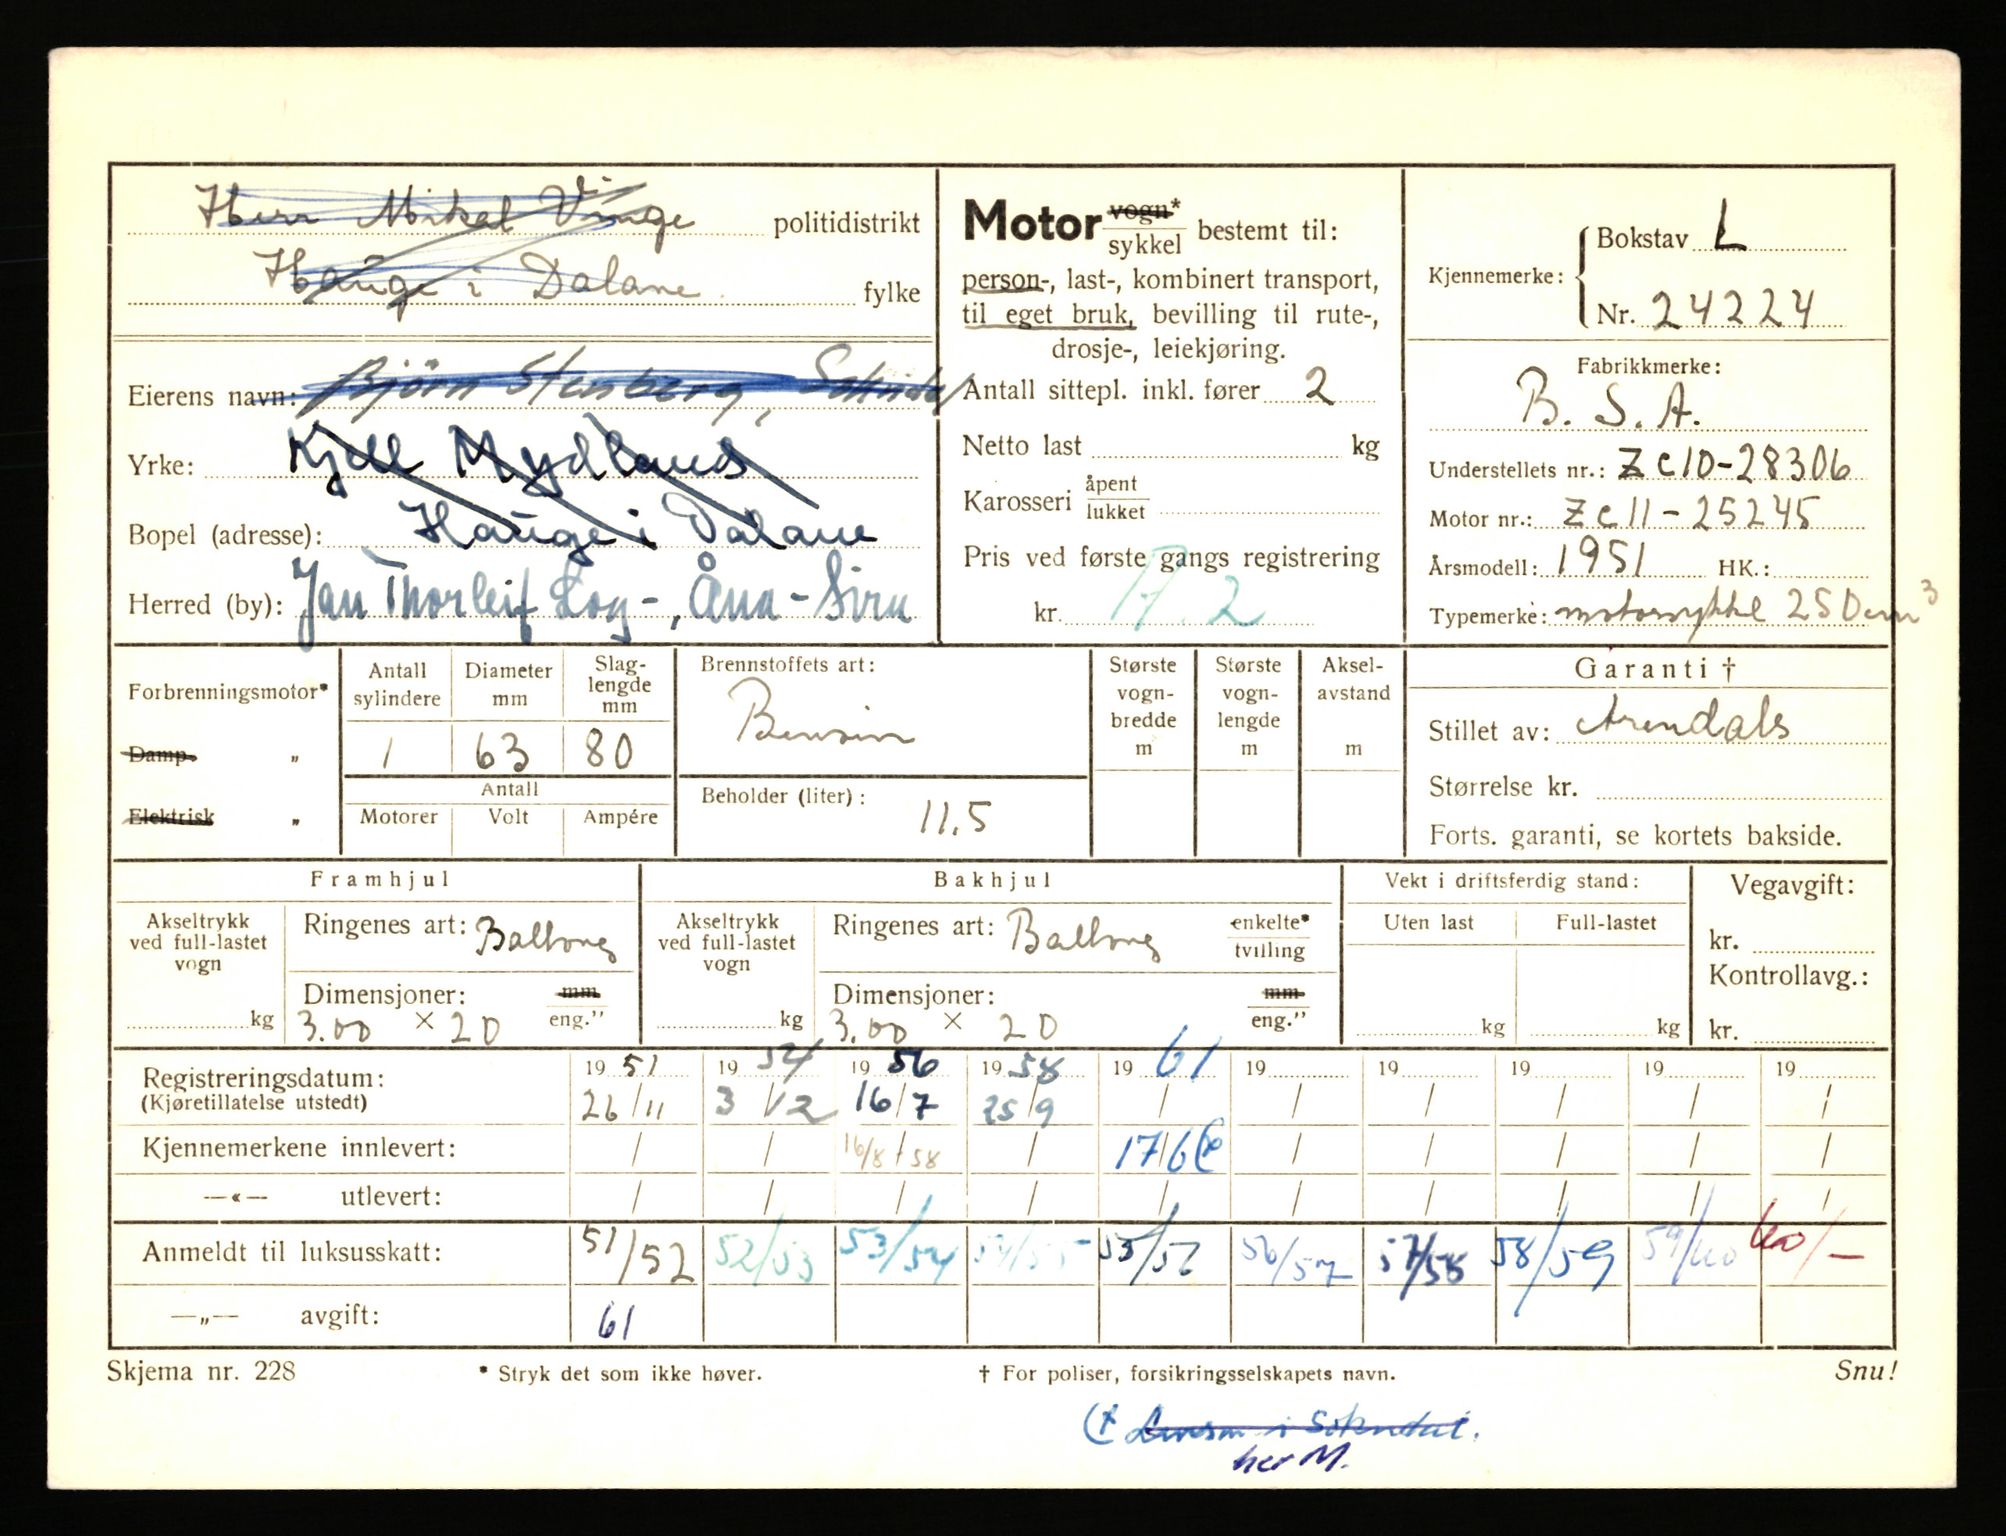 Herr Mikal Vinge politidistrikt
Hauge i Dalane fylke
Eierens navn: Björn Stenberg, Sokndal
Yrke: Kjell Mydland
Bopel (adresse): Hauge i Dalane
Herred (by): Jan Thorleif Log-, Åna-Sira
Motor vogn* sykkel bestemt til:
person-, last-, kombinert transport,
til eget bruk, bevilling til rute-,
drosje-, leiekjøring.
Antall sittepl. inkl. fører 2
Netto last kg
Karosseri åpent lukket
Pris ved første gangs registrering
kr. A. 2
Kjennemerke: Bokstav L
Nr. 24224
Fabrikkmerke:
B. S. A.
Understellets nr.: Zc10-28306
Motor nr.: Zc11-25245
Årsmodell: 1951 HK.:
Typemerke: motorsykkel 250cm³
Forbrenningsmotor*
Damp- „
Elektrisk „
Antall sylindere Diameter mm Slag-lengde mm
1 63 80
Antall
Motorer Volt Ampére
Brennstoffets art:
Bensin
Beholder (liter): 11,5
Største vogn-bredde m
Største vogn-lengde m
Aksel-avstand m
Garanti †
Stillet av: Arendals
Størrelse kr.
Forts. garanti, se kortets bakside.
Framhjul
Akseltrykk ved full-lastet vogn kg
Ringenes art: Ballong
Dimensjoner: mm eng."
3.00 × 20
Bakhjul
Akseltrykk ved full-lastet vogn kg
Ringenes art: Ballong enkelte* tvilling
Dimensjoner: mm eng."
3.00 × 20
Vekt i driftsferdig stand:
Uten last Full-lastet
kg kg
Vegavgift:
kr.
Kontrollavg.:
kr.
Registreringsdatum: 1951 1954 1956 1958 1961 19 19 19 19 19
(Kjøretillatelse utstedt) 26/11 3/12 16/7 25/9 / / / / / /
Kjennemerkene innlevert: / / 16/8/58 / 17/6 / / / / /
—«— utlevert: / / / / / / / / / /
Anmeldt til luksusskatt: 51/52 52/53 53/54 54/55 55/56 56/57 57/58 58/59 59/60 60/—
—„— avgift: 61
Skjema nr. 228 * Stryk det som ikke høver. † For poliser, forsikringsselskapets navn. Snu!
i Sokndal.
her M.